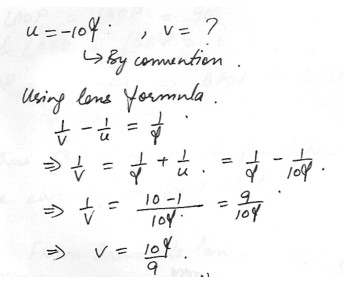 u = -10f. , v = ?
↳ By convention.
Using lens formula.
1/v - 1/u = 1/f
⇒ 1/v = 1/f + 1/u . = 1/f - 1/10f .
⇒ 1/v = 10-1/10f. = 9/10f.
⇒ v = 10f/9 .